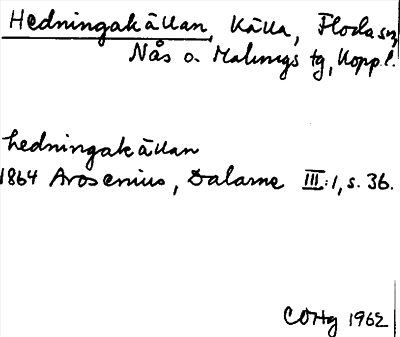 Hedningakällan, Källa, Floda sn,
Nås o. Malungs tg, Kopp.l.
hedningakällan
1864 Arosenius, Dalarne III:1, s. 36.
COHg 1962